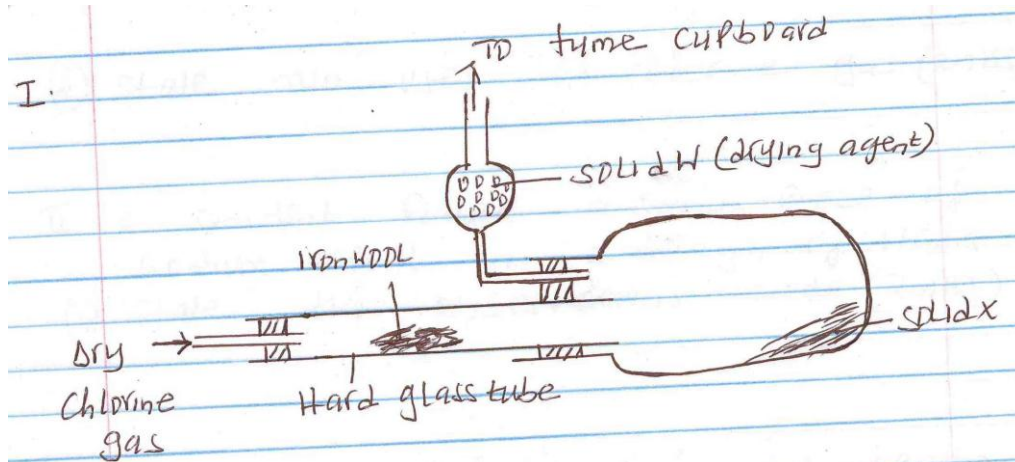 TO fume cupboard
I.
solid W (drying agent)
iron wool
solid X
Dry
Chlorine
gas
Hard glass tube